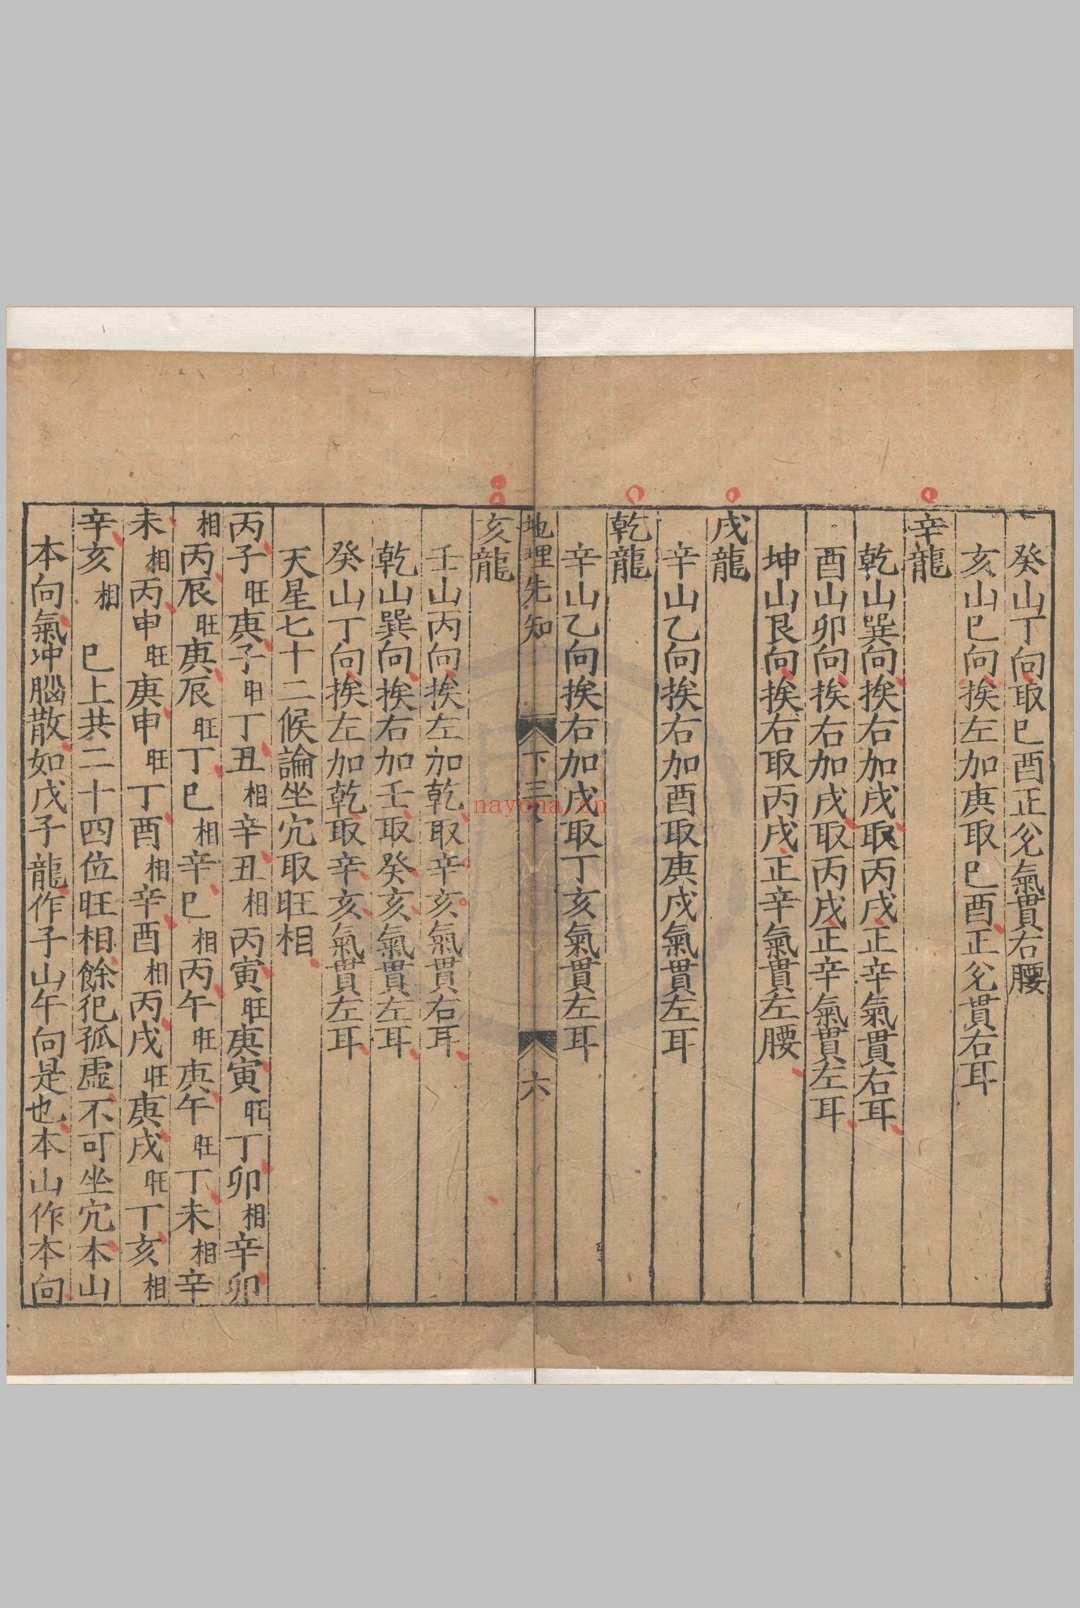 癸山丁向取巳酉正兊氣貫右腰
亥山巳向挨左加庚取巳酉正兊貫右耳
辛龍
乾山巽向挨右加戌取丙戌正辛氣貫右耳
酉山卯向挨右加戌取丙戌正辛氣貫左耳
坤山艮向挨右取丙戌正辛氣貫左腰
戌龍
辛山乙向挨右加酉取庚戌氣貫左耳
乾龍
辛山乙向挨右加戌取丁亥氣貫左耳
地理先知 下三 六
亥龍
壬山丙向挨左加乾取辛亥氣貫右耳
乾山巽向挨右加壬取癸亥氣貫左耳
癸山丁向挨左加乾取辛亥氣貫左耳
天星七十二候論坐穴取旺相
丙子旺庚子旺丁丑相辛丑相丙寅旺庚寅旺丁卯相辛卯
相丙辰旺庚辰旺丁巳相辛巳相丙午旺庚午旺丁未相辛
未相丙申旺庚申旺丁酉相辛酉相丙戌旺庚戌旺丁亥相
辛亥相 已上共二十四位旺相餘犯孤虛不可坐穴本山
本向氣冲腦散如戊子龍作子山午向是也本山作本向
nayona.cn